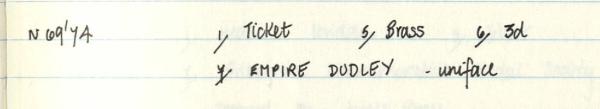 N 69'74 1, Ticket 5, Brass 6, 3d
7, EMPIRE DUDLEY - uniface